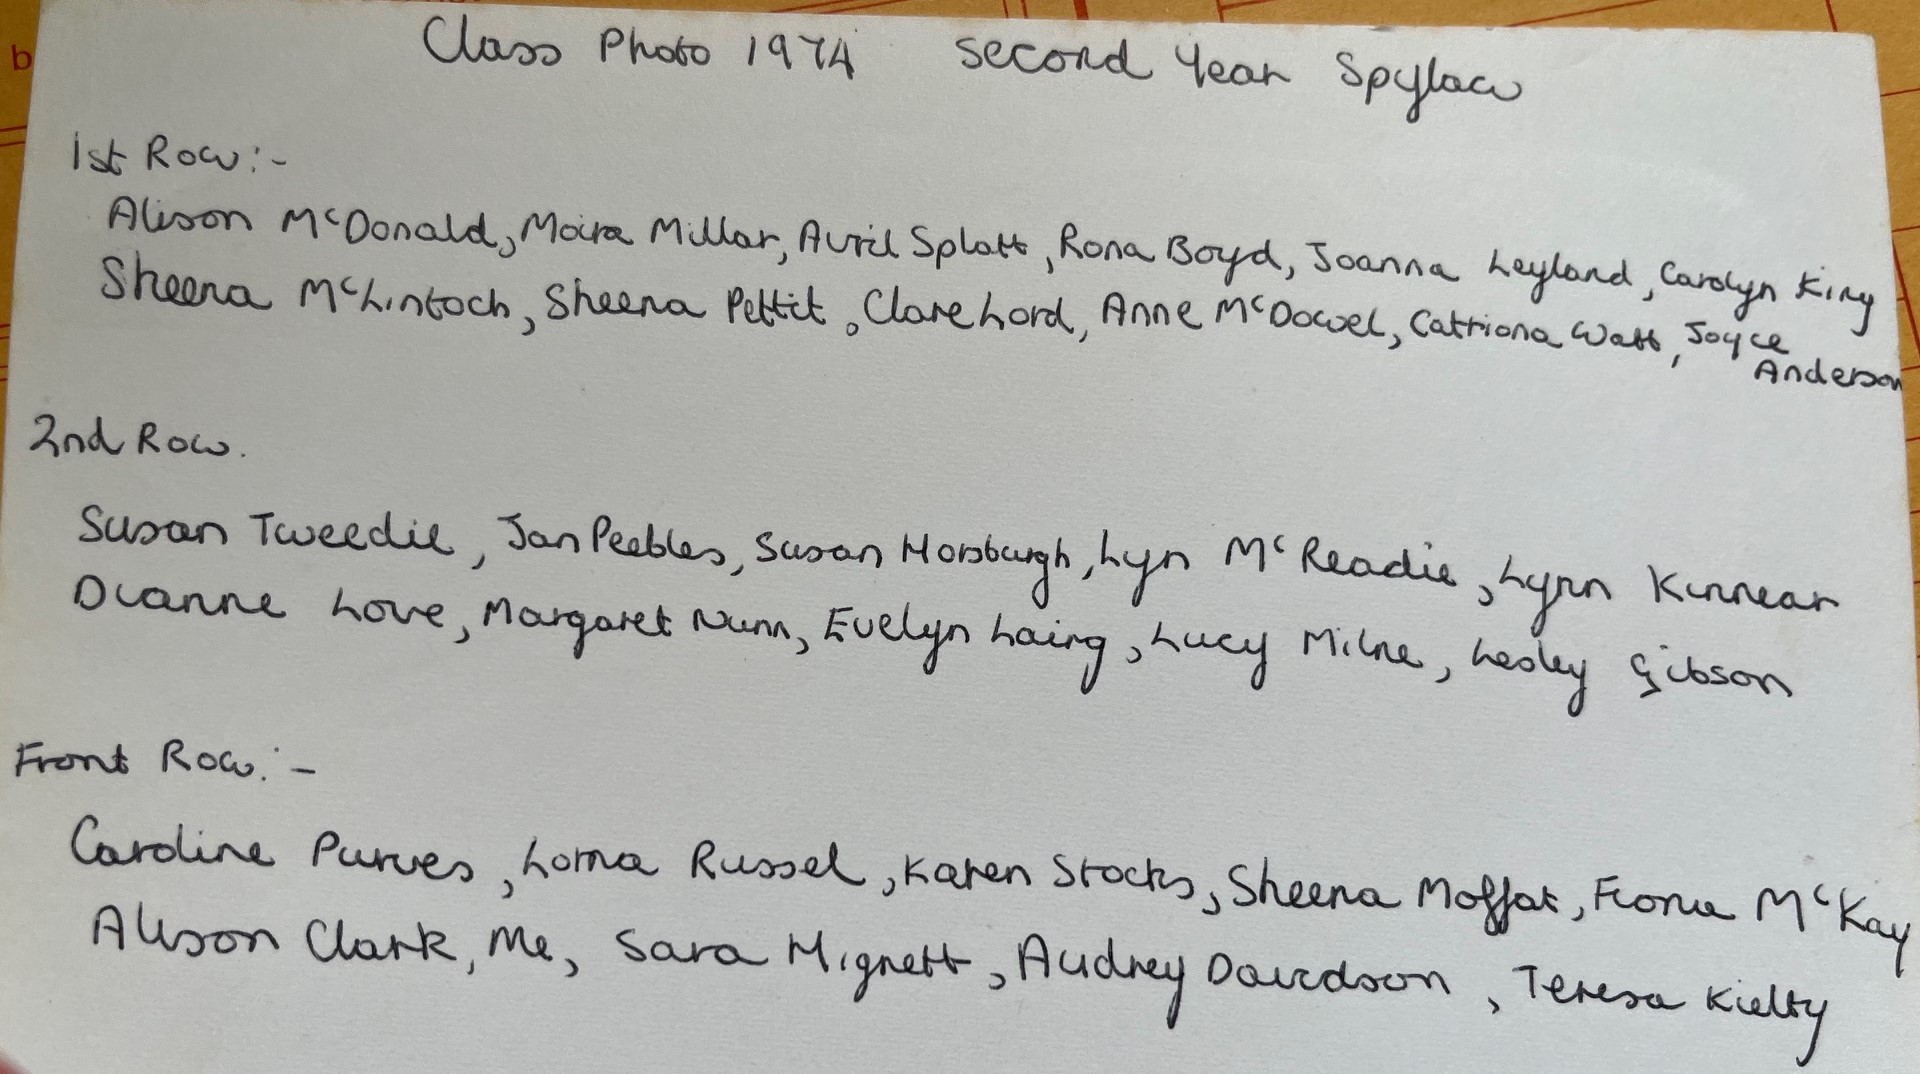 Class Photo 1974 Second Year Spylaw
1st Row:-
Alison McDonald, Moira Millar, Avril Splatt, Rona Boyd, Joanna Leyland, Carolyn King
Sheena McLintoch, Sheena Pettit, Clare Lord, Anne McDowel, Catriona Watt, Joyce
Anderson
2nd Row.
Susan Tweedie, Jan Peebles, Susan Horsburgh, Lyn McReadie, Lynn Kinnear
Dianne Love, Margaret Nunn, Evelyn Laing, Lucy Milne, Lesley Gibson
Front Row:-
Caroline Purves, Lorna Russel, Karen Stocks, Sheena Moffat, Fiona McKay
Alison Clark, Me, Sara Mignett, Audrey Davidson, Teresa Kielty